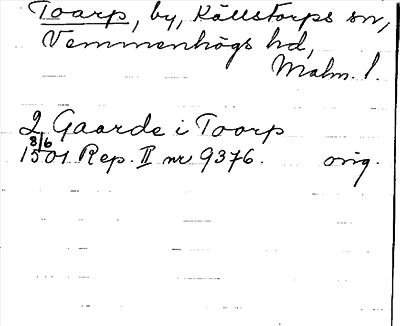 Toarp, by, Källstorps sn,
Vemmenhögs hd,
Malm. l.
2 Gaarde i Toorp
8/6
1501 Rep. II nr 9376. orig.